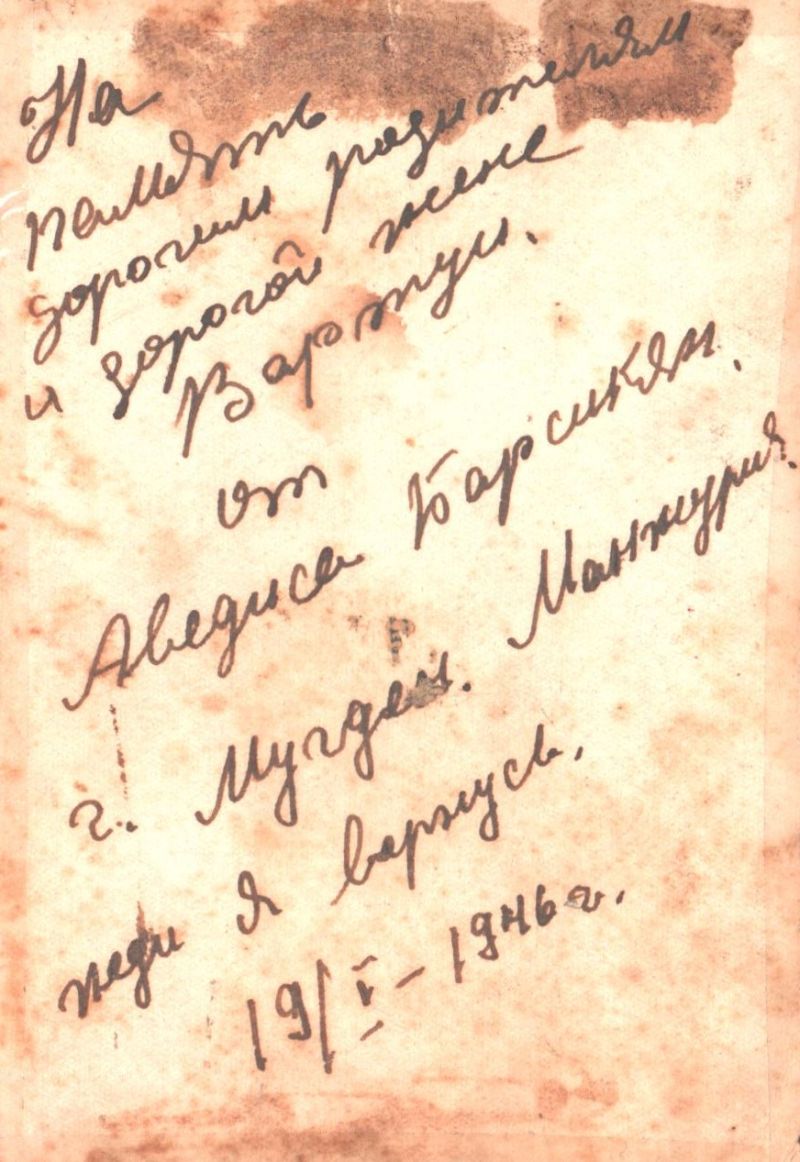 На
память
дорогим родителям
и дорогой жене
Вартуи.
от
Аведиса Барсикян.
г. Мугден. Манжурия.
жди я вернусь.
19/I – 1946 г.